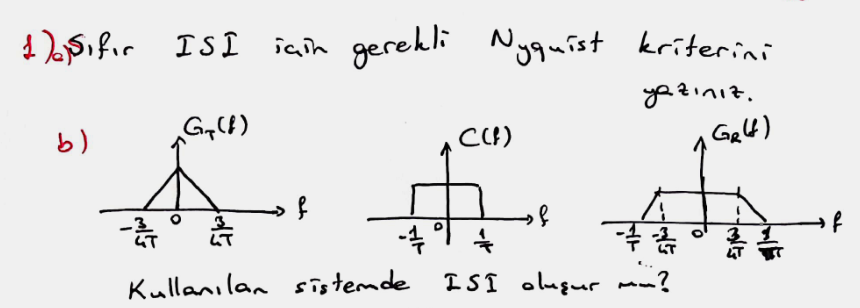 1) a) Sıfır ISI için gerekli Nyquist kriterini
yazınız.
b) G_T(f) C(f) G_R(f)
-3/4T 0 3/4T f -1/T 0 1/T f -1/T -3/4T 0 3/4T 1/T f
Kullanılan sistemde ISI oluşur mu?